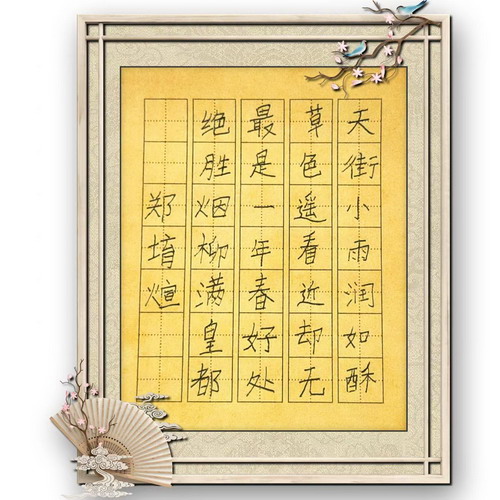 天街小雨润如酥
草色遥看近却无
最是一年春好处
绝胜烟柳满皇都
郑堉煊